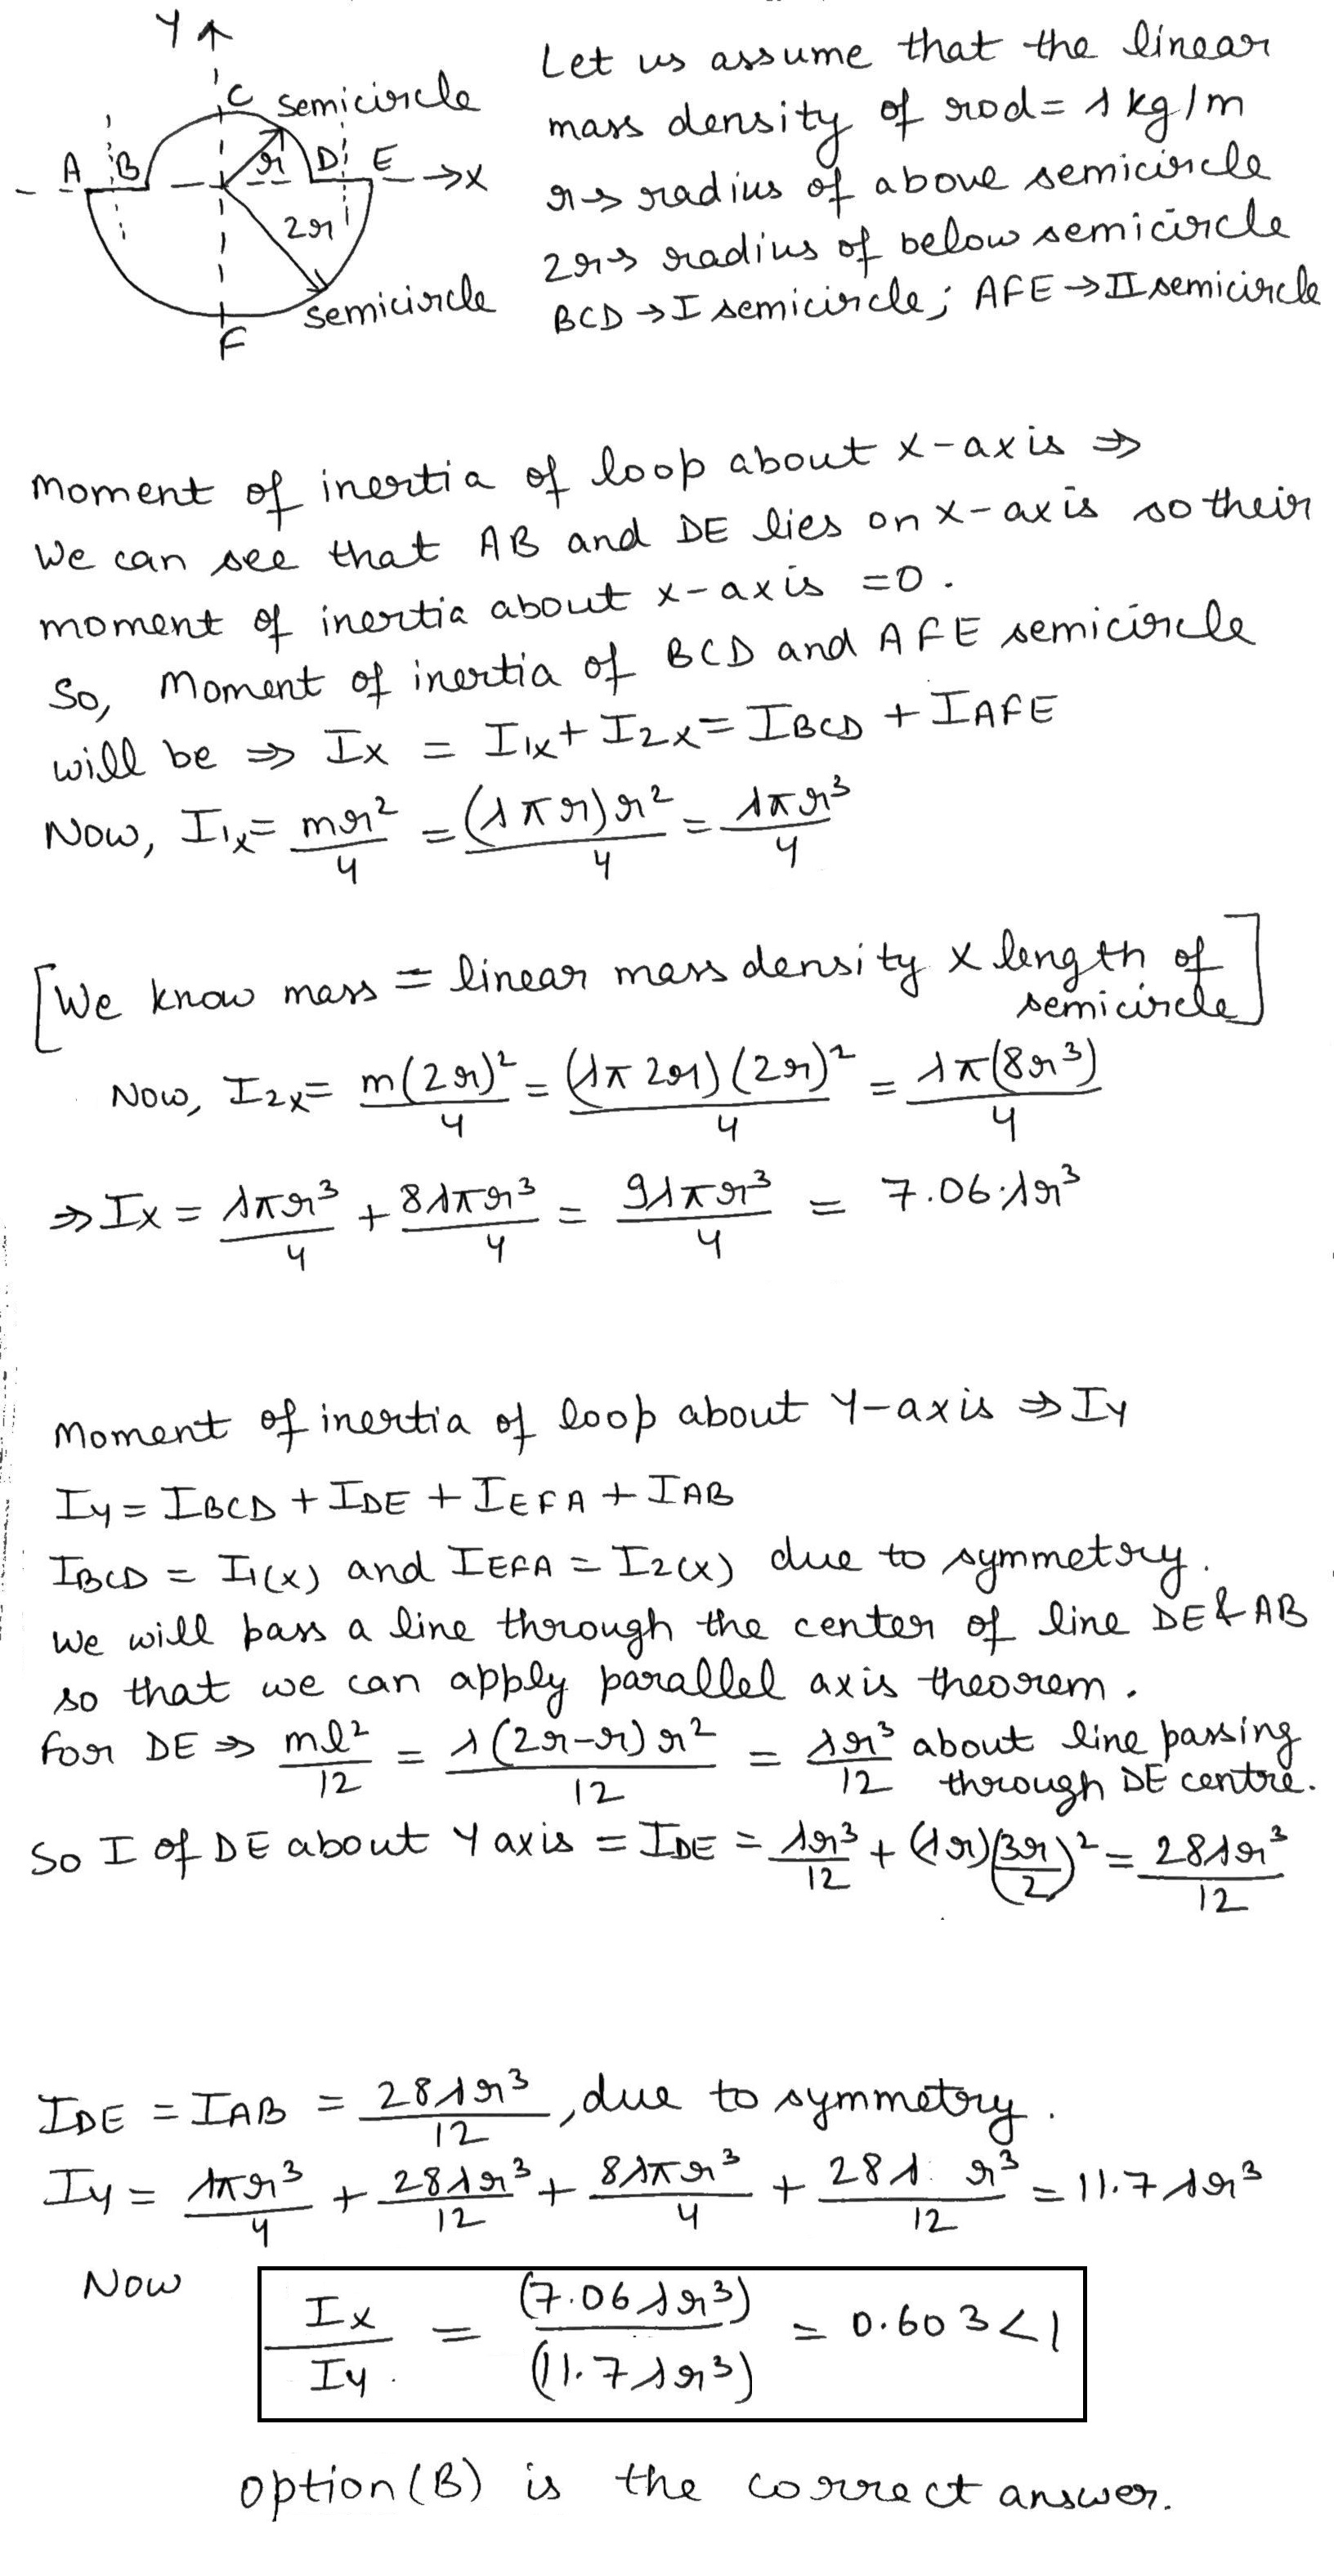 Y
C semicircle
A B r D E →X
2r
semicircle
F
Let us assume that the linear
mass density of rod = λ kg/m
r→ radius of above semicircle
2r→ radius of below semicircle
BCD → I semicircle; AFE → II semicircle
Moment of inertia of loop about x-axis ⇒
We can see that AB and DE lies on x-axis so their
moment of inertia about x-axis = 0.
So, Moment of inertia of BCD and AFE semicircle
will be ⇒ Ix = I1x + I2x = IBCD + IAFE
Now, I1x = mr²/4 = (λπr)r²/4 = λπr³/4
[We know mass = linear mass density x length of
semicircle]
Now, I2x = m(2r)²/4 = (λπ2r)(2r)²/4 = λπ(8r³)/4
⇒ Ix = λπr³/4 + 8λπr³/4 = 9λπr³/4 = 7.06λr³
Moment of inertia of loop about Y-axis ⇒ Iy
Iy = IBCD + IDE + IEFA + IAB
IBCD = I1(x) and IEFA = I2(x) due to symmetry.
We will pass a line through the center of line DE & AB
so that we can apply parallel axis theorem.
for DE ⇒ ml²/12 = λ(2r-r)r²/12 = λr³/12 about line passing
through DE centre.
So I of DE about Y axis = IDE = λr³/12 + (λr)(3r/2)² = 28λr³/12
IDE = IAB = 28λr³/12, due to symmetry.
Iy = λπr³/4 + 28λr³/12 + 8λπr³/4 + 28λ r³/12 = 11.7λr³
Now Ix/Iy = (7.06λr³)/(11.7λr³) = 0.603 < 1
option (B) is the correct answer.